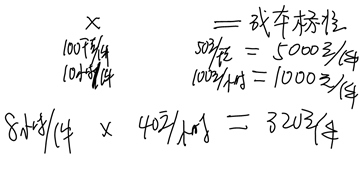 × = 成本标准
100千克/件 50元/千克 = 5000元/件
10小时/件 100元/小时 = 1000元/件
8小时/件 × 40元/小时 = 320元/件